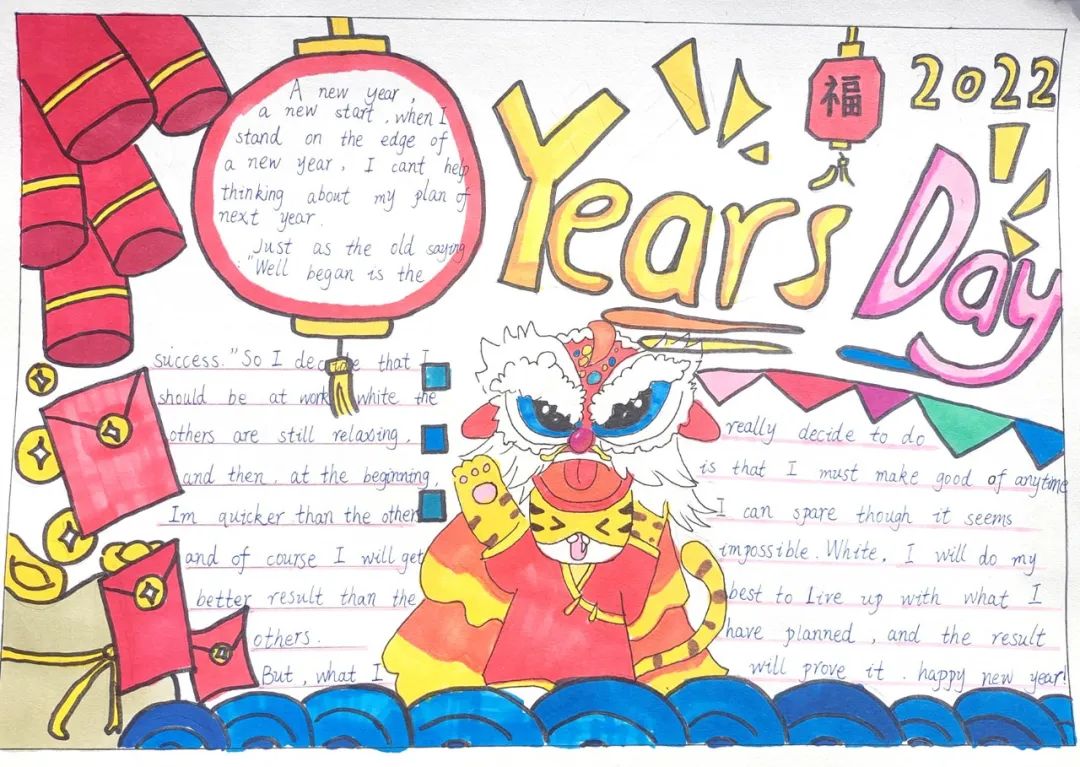 Years Day
福
2022
A new year,
a new start, when I
stand on the edge of
a new year, I cant help
thinking about my plan of
next year.
Just as the old saying
"Well began is the
success." So I decide that I
should be at work white the
others are still relaxing,
and then, at the beginning,
Im quicker than the other
and of course I will get
better result than the
others.
But, what I
really decide to do
is that I must make good of anytime
I can spare though it seems
impossible. White, I will do my
best to live up with what I
have planned, and the result
will prove it. happy new year!